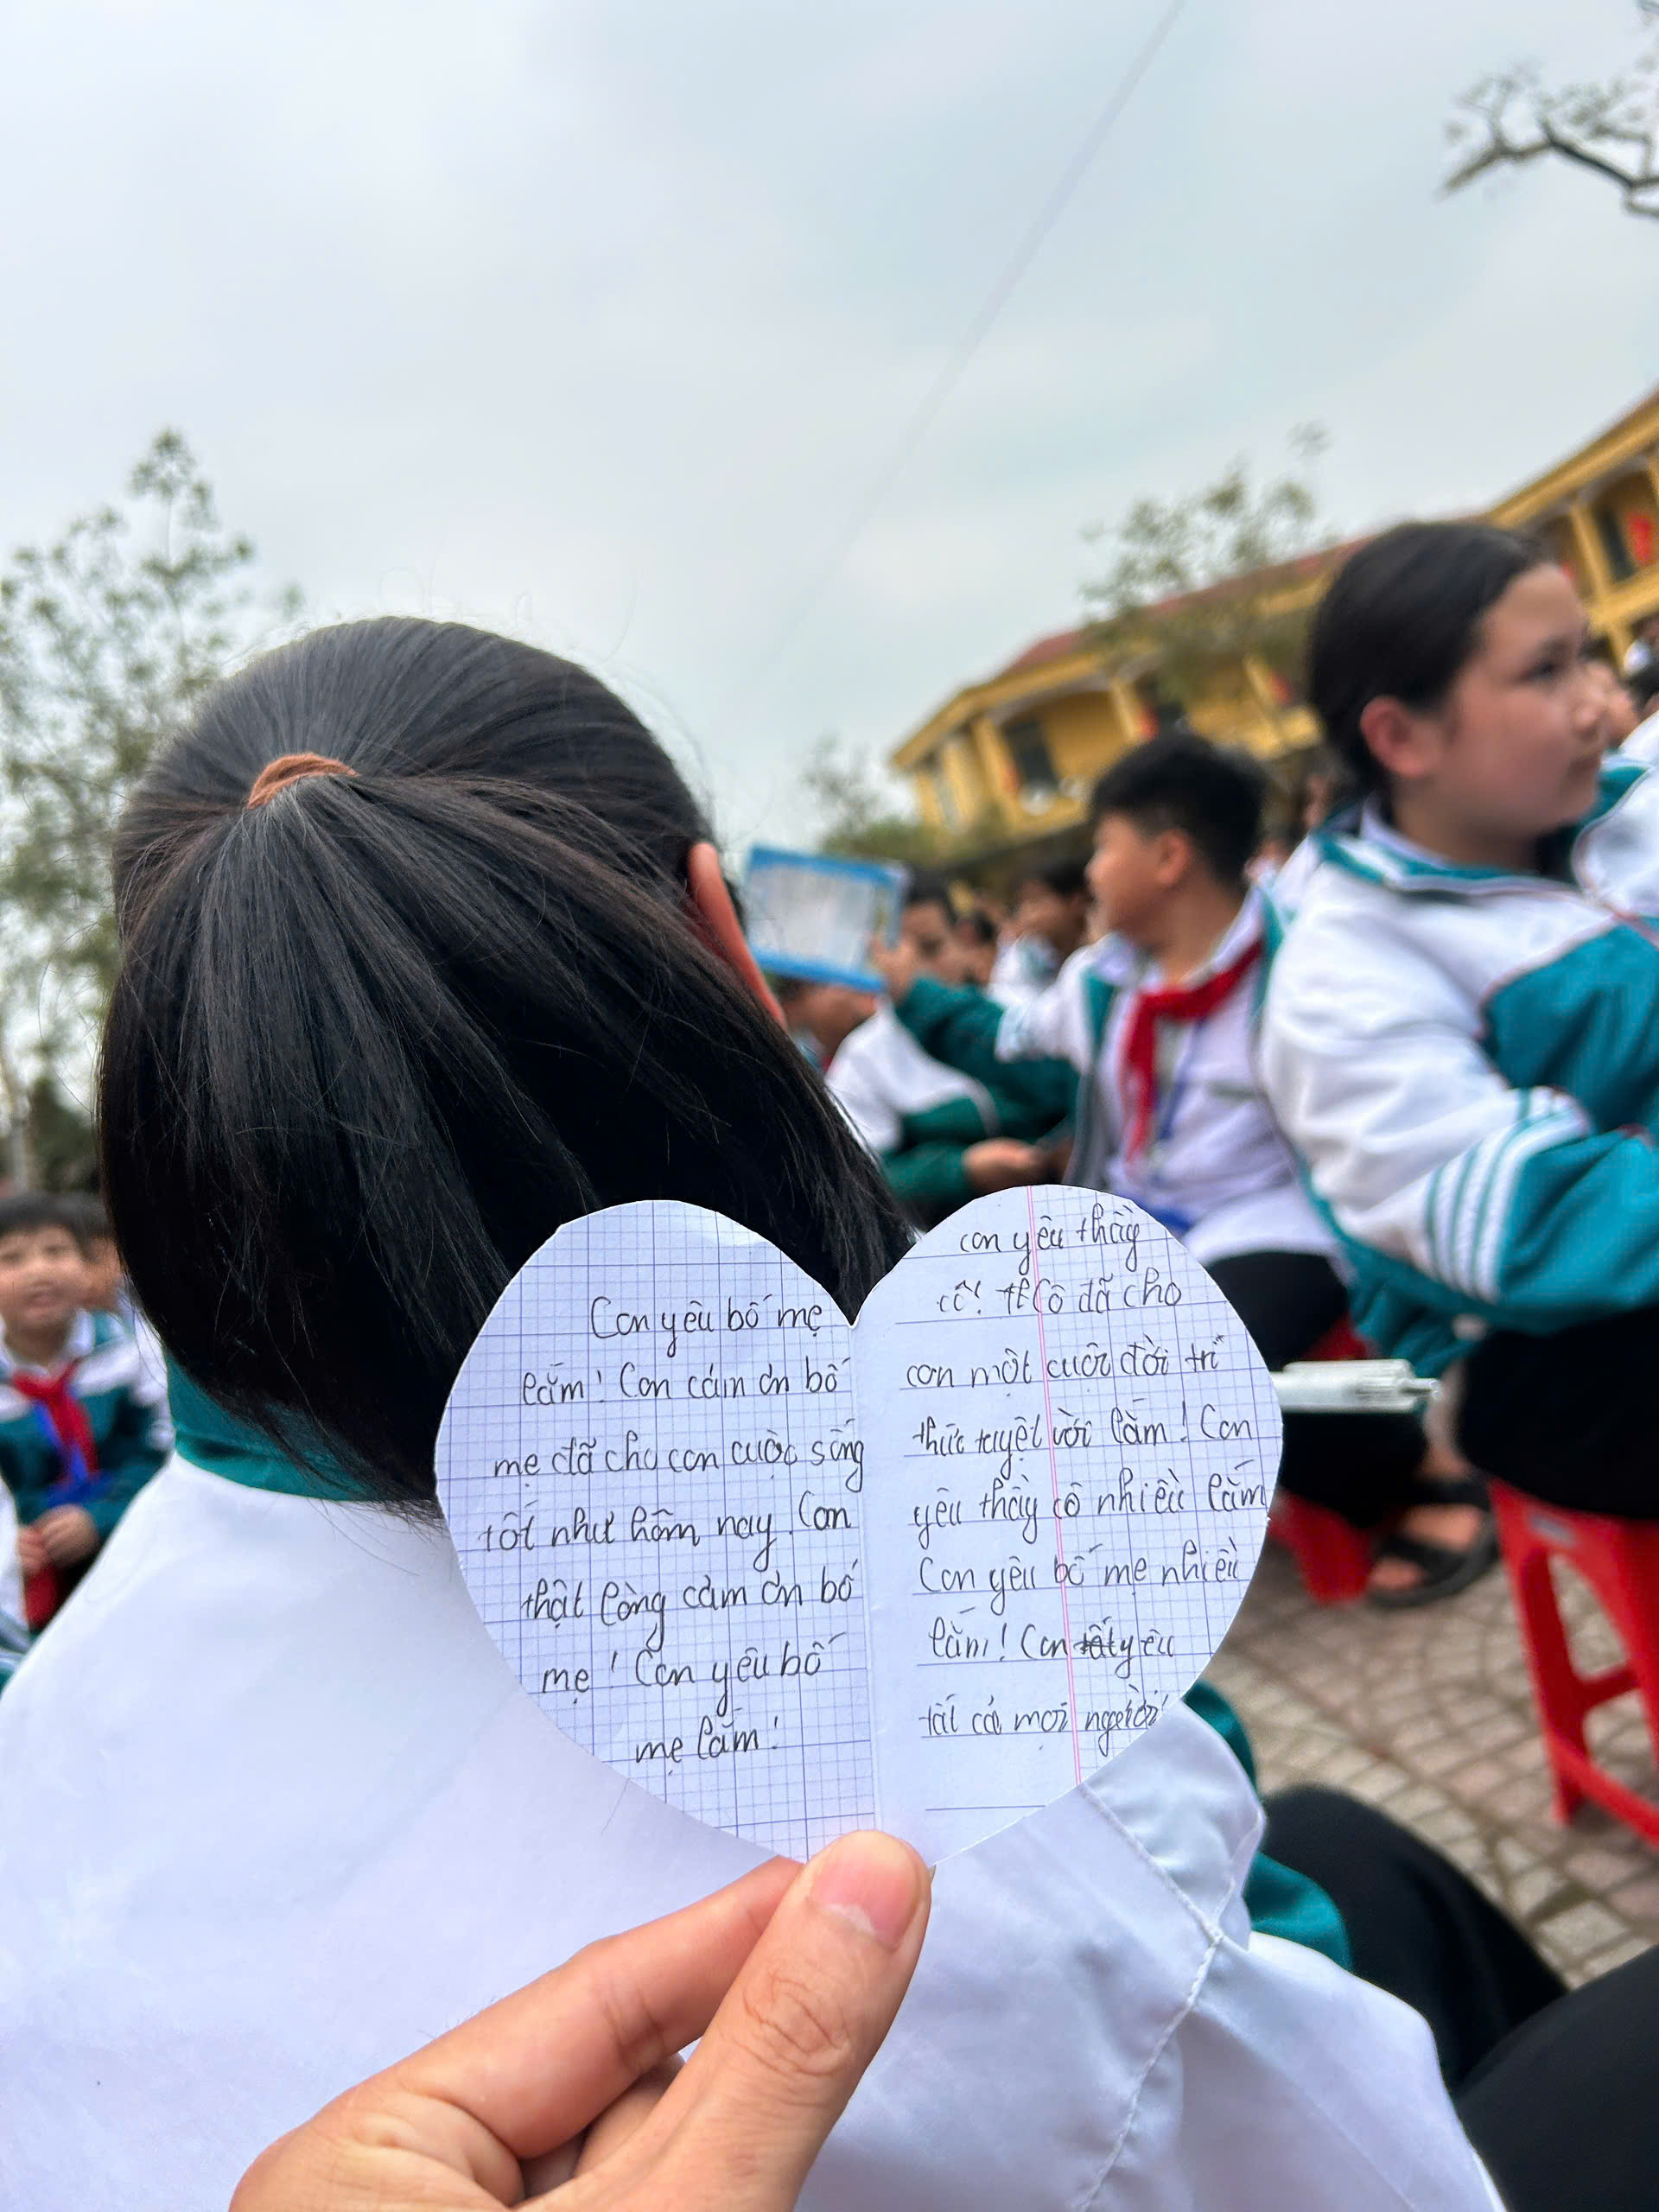 Con yêu bố mẹ
lắm! Con cảm ơn bố
mẹ đã cho con cuộc sống
tốt như hôm nay. Con
thật lòng cảm ơn bố
mẹ! Con yêu bố
mẹ lắm!
con yêu thầy
cô! cô đã cho
con một cuộc đời tri
thức tuyệt vời lắm! Con
yêu thầy cô nhiều lắm
Con yêu bố mẹ nhiều
lắm! Con yêu
tất cả mọi người!